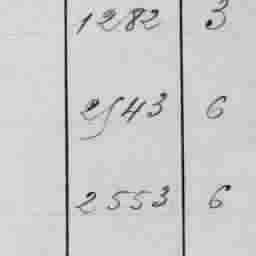 1282 3
2543 6
2553 6